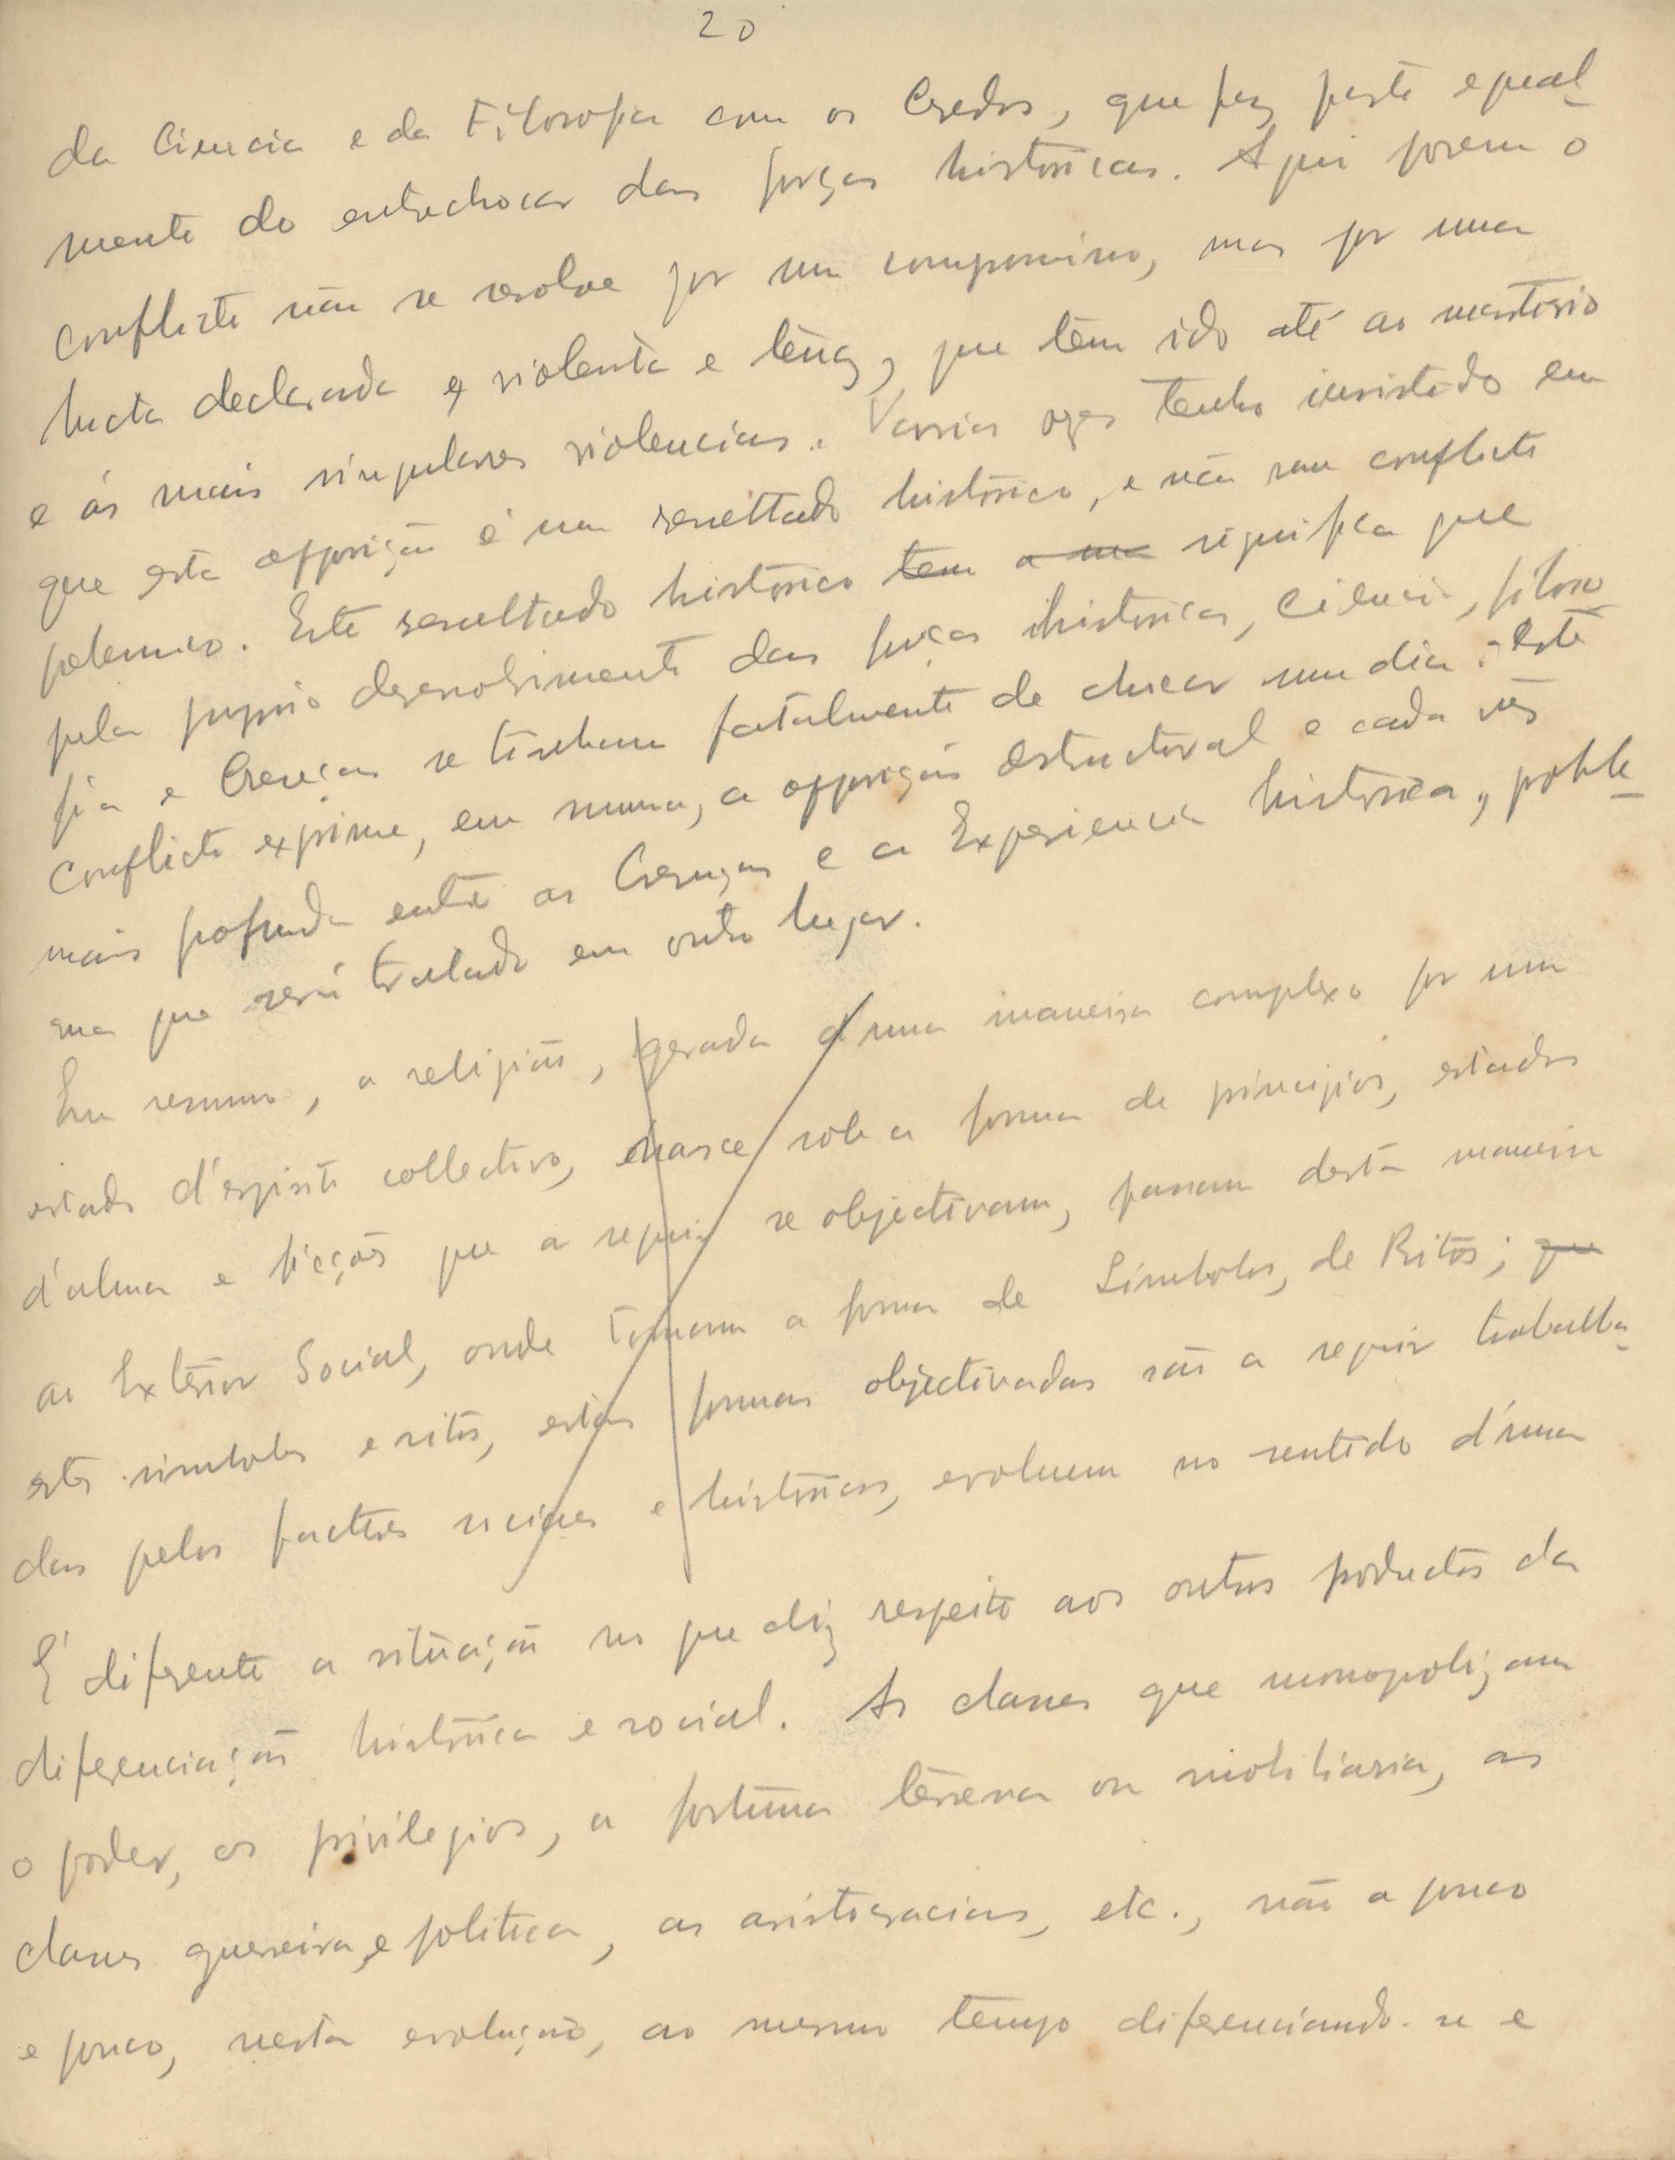 20
da Ciencia e da Filosofia com os Credos, que fez parte egual-
mente do entrechocar das forças históricas. Aqui porem o
conflicto não se resolve por um compromisso, mas por uma
lucta declarada e violenta e tenaz, que tem ido até ao martirio
e ás mais singulares violencias. Varias vezes tenho insistido em
que esta opposição é um resultado histórico, e não um conflicto
polemico. Este resultado histórico tem significa que
pelo proprio desenvolvimento das forças históricas, Ciencia, filoso
fia e Crenças se tinham fatalmente de chocar um dia: este
conflicto exprime, em summa, a opposição estructural e cada vês
mais profunda entre as Crenças e a Experiencia histórica, proble-
ma que será tratado em outro lugar.
Em resumo, a religião, gerada d'uma maneira complexa por um
estado d'espirito collectivo, nasce sob a forma de principios, estados
d'alma e ficções que a seguir se objectivam, passam desta maneira
ao Extérior Social, onde tomam a forma de Símbolos, de Ritos; que
estes simbolos e ritos, estas formas objectivadas são a seguir trabalha-
das pelos factores sociaes e históricos, evoluem no sentido d'uma
É diferente a situação no que diz respeito aos outros productos da
diferenciação histórica e social. As classes que monopolizam
o poder, os privilegios, a fortuna terrena ou mobiliaria, as
classes guerreira, e politica, as aristocracias, etc., vão a pouco
e pouco, nesta evolução, ao mesmo tempo diferenciando-se e